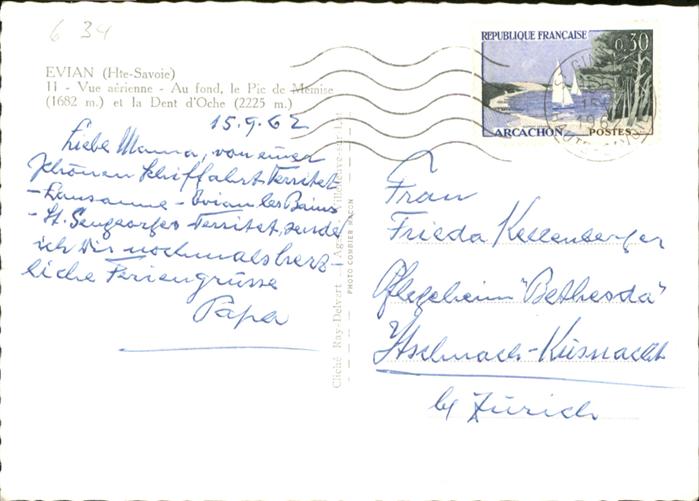 6 34
EVIAN (Hte-Savoie)
11 - Vue aérienne - Au fond, le Pic de Mémise
(1682 m.) et la Dent d'Oche (2225 m.)
15.9.62
Liebe Mamma, von einer
schönen Schiffahrt Territet
- Lausanne - Evian les Bains
- St. Gengorges - Territet, sende
ich Dir nochmals herz-
liche Feriengrüsse
Papa
Cliché Ray-Delvert
PHOTO COMBIER MACON
REPUBLIQUE FRANÇAISE
0,30
ARCACHON POSTES
Frau
Frieda Kellenberger
Pflegeheim "Bethesda"
Itschnach-Küsnacht
by Zürich